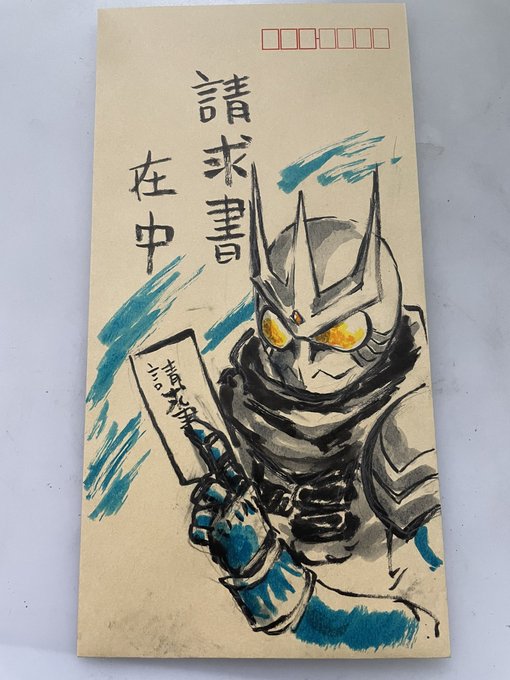 請求書
在中
請求書